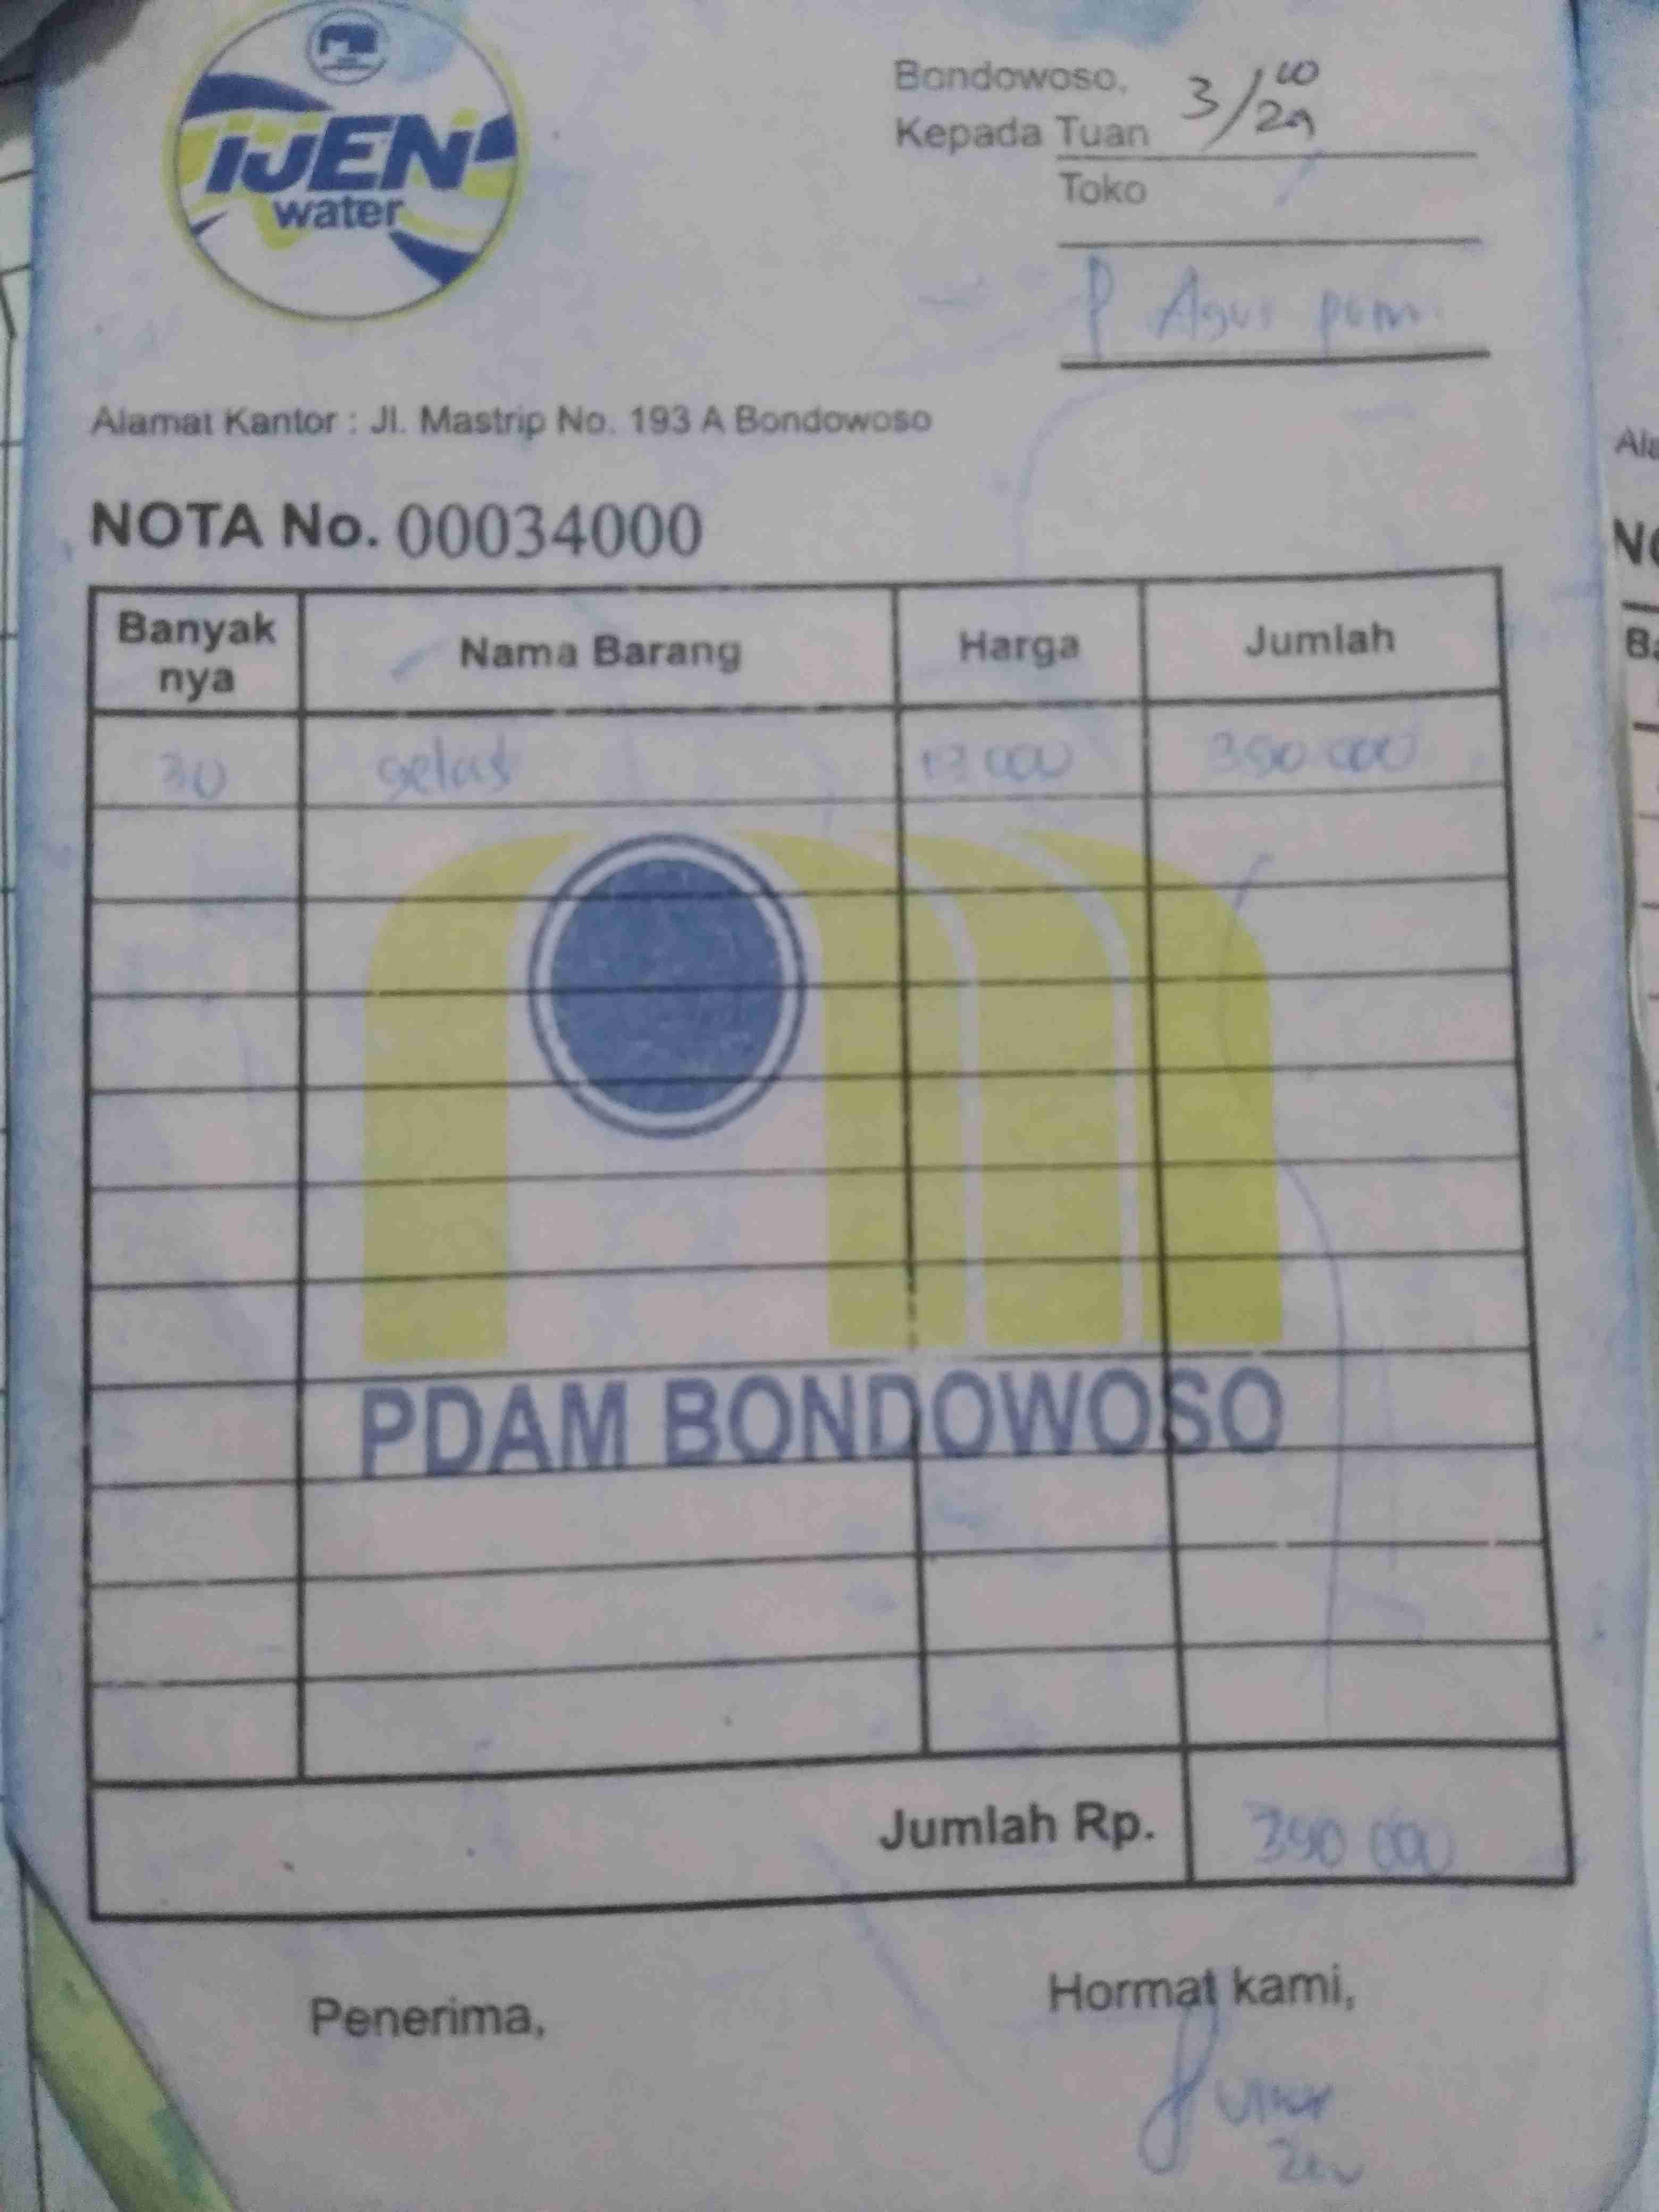 IJEN
water
Bondowoso, 3/
Kepada Tuan
Toko
P Agus pam
Alamat Kantor : Jl. Mastrip No. 193 A Bondowoso
NOTA No. 00034000
Banyak nya Nama Barang Harga Jumlah
30 gelas 13 000 390 000
PDAM BONDOWOSO
Jumlah Rp. 390 000
Penerima, Hormat kami,
Ala
NO
Ba